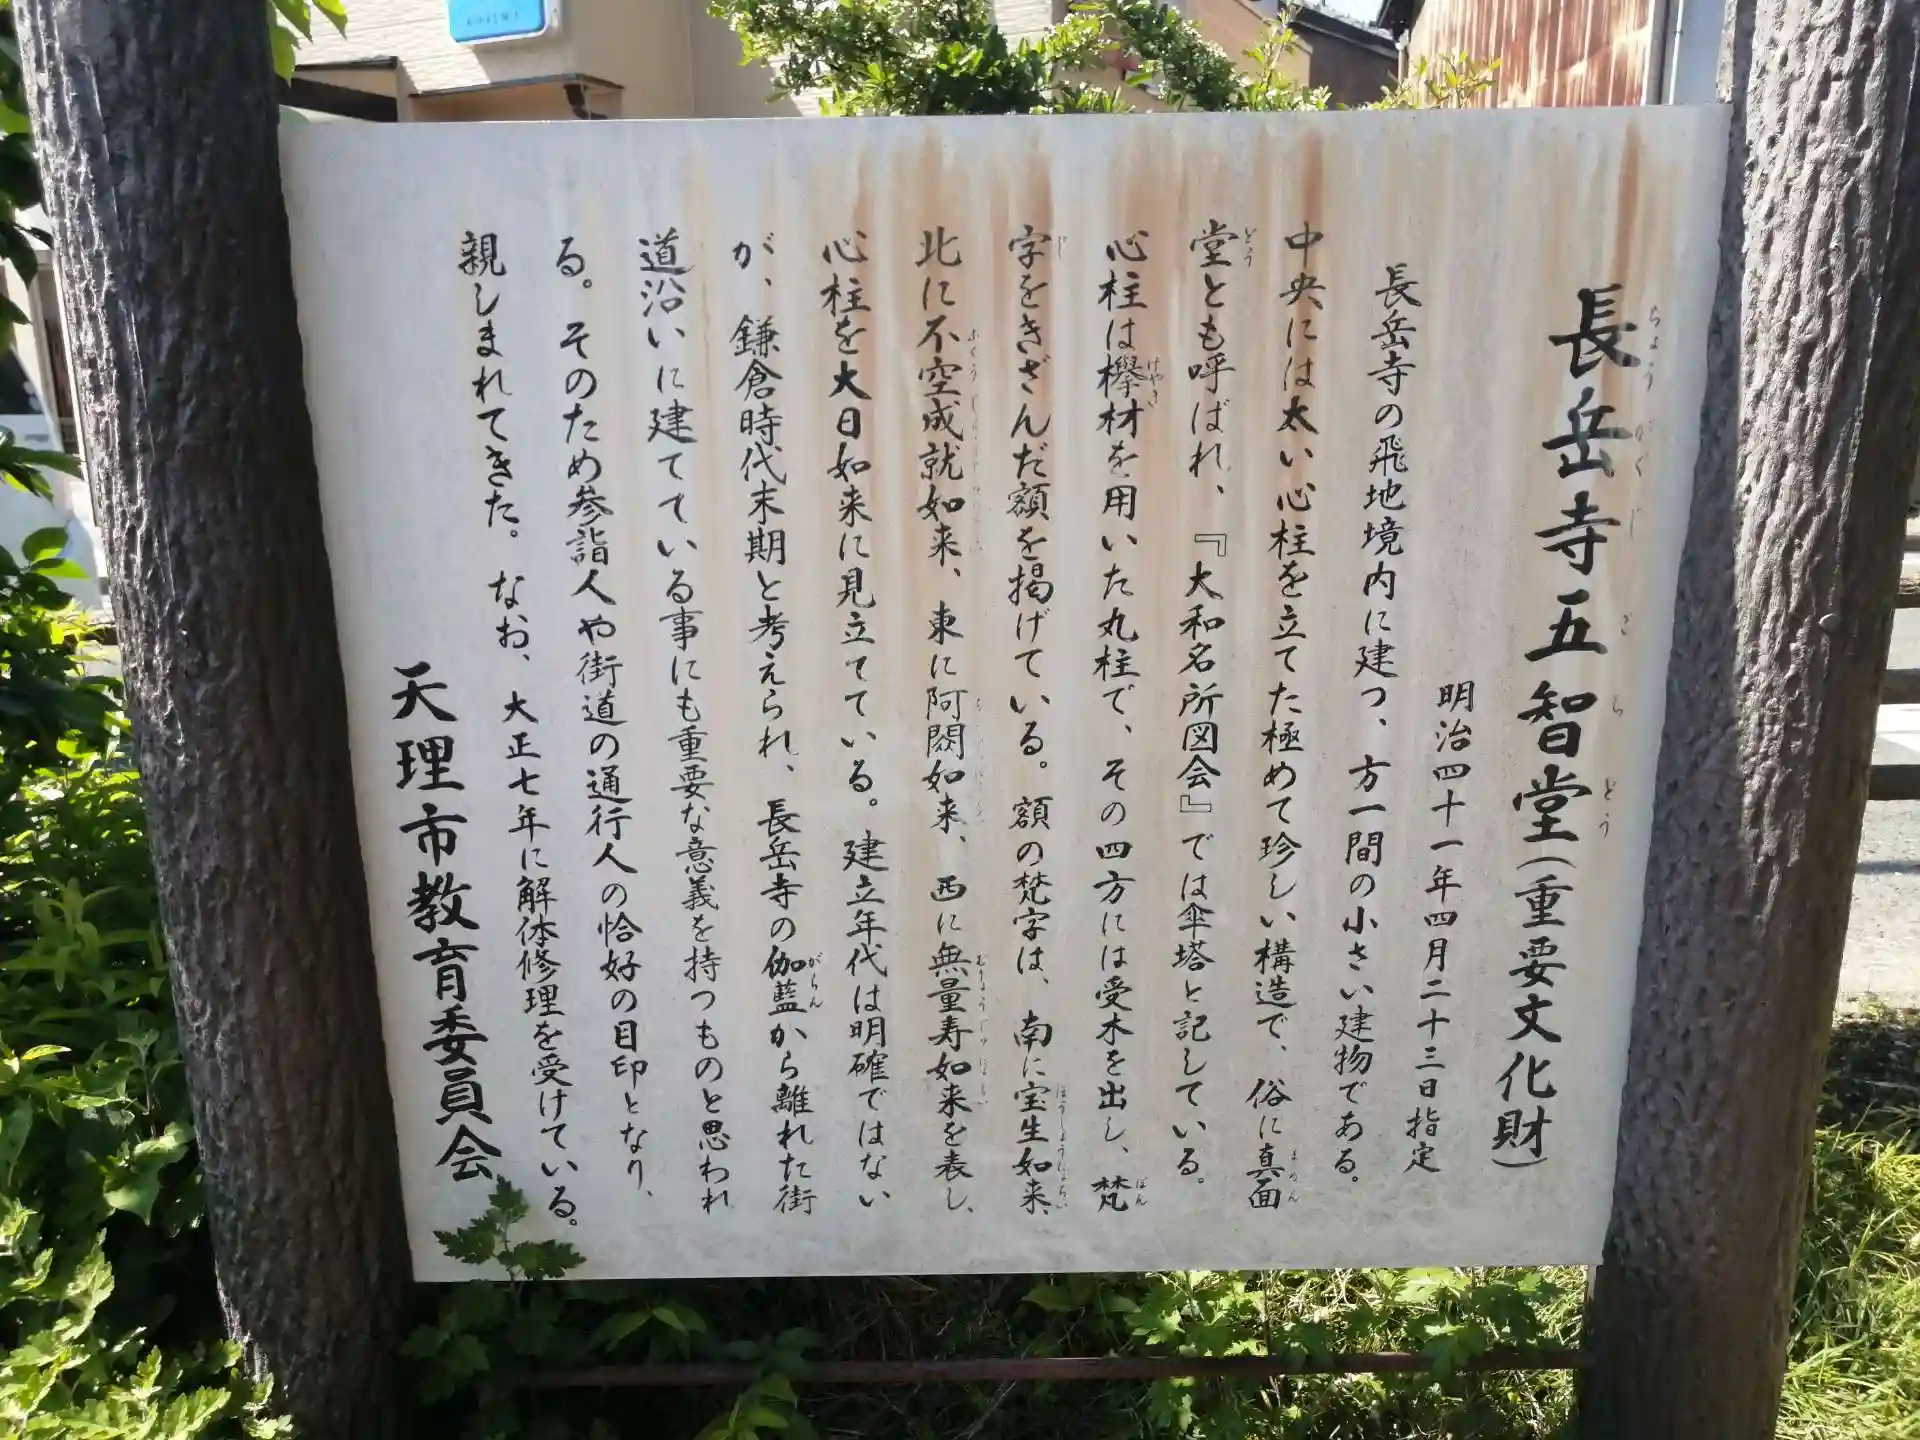 長岳寺五智堂（重要文化財）
明治四十一年四月二十三日指定
長岳寺の飛地境内に建つ、方一間の小さい建物である。
中央には太い心柱を立てた極めて珍しい構造で、俗に真面
堂とも呼ばれ、『大和名所図会』では傘塔と記している。
心柱は欅材を用いた丸柱で、その四方には受木を出し、梵
字をきざんだ額を掲げている。額の梵字は、南に宝生如来、
北に不空成就如来、東に阿閦如来、西に無量寿如来を表し、
心柱を大日如来に見立てている。建立年代は明確ではない
が、鎌倉時代末期と考えられ、長岳寺の伽藍から離れた街
道沿いに建てている事にも重要な意義を持つものと思われ
る。そのため参詣人や街道の通行人の恰好の目印となり、
親しまれてきた。なお、大正七年に解体修理を受けている。
天理市教育委員会